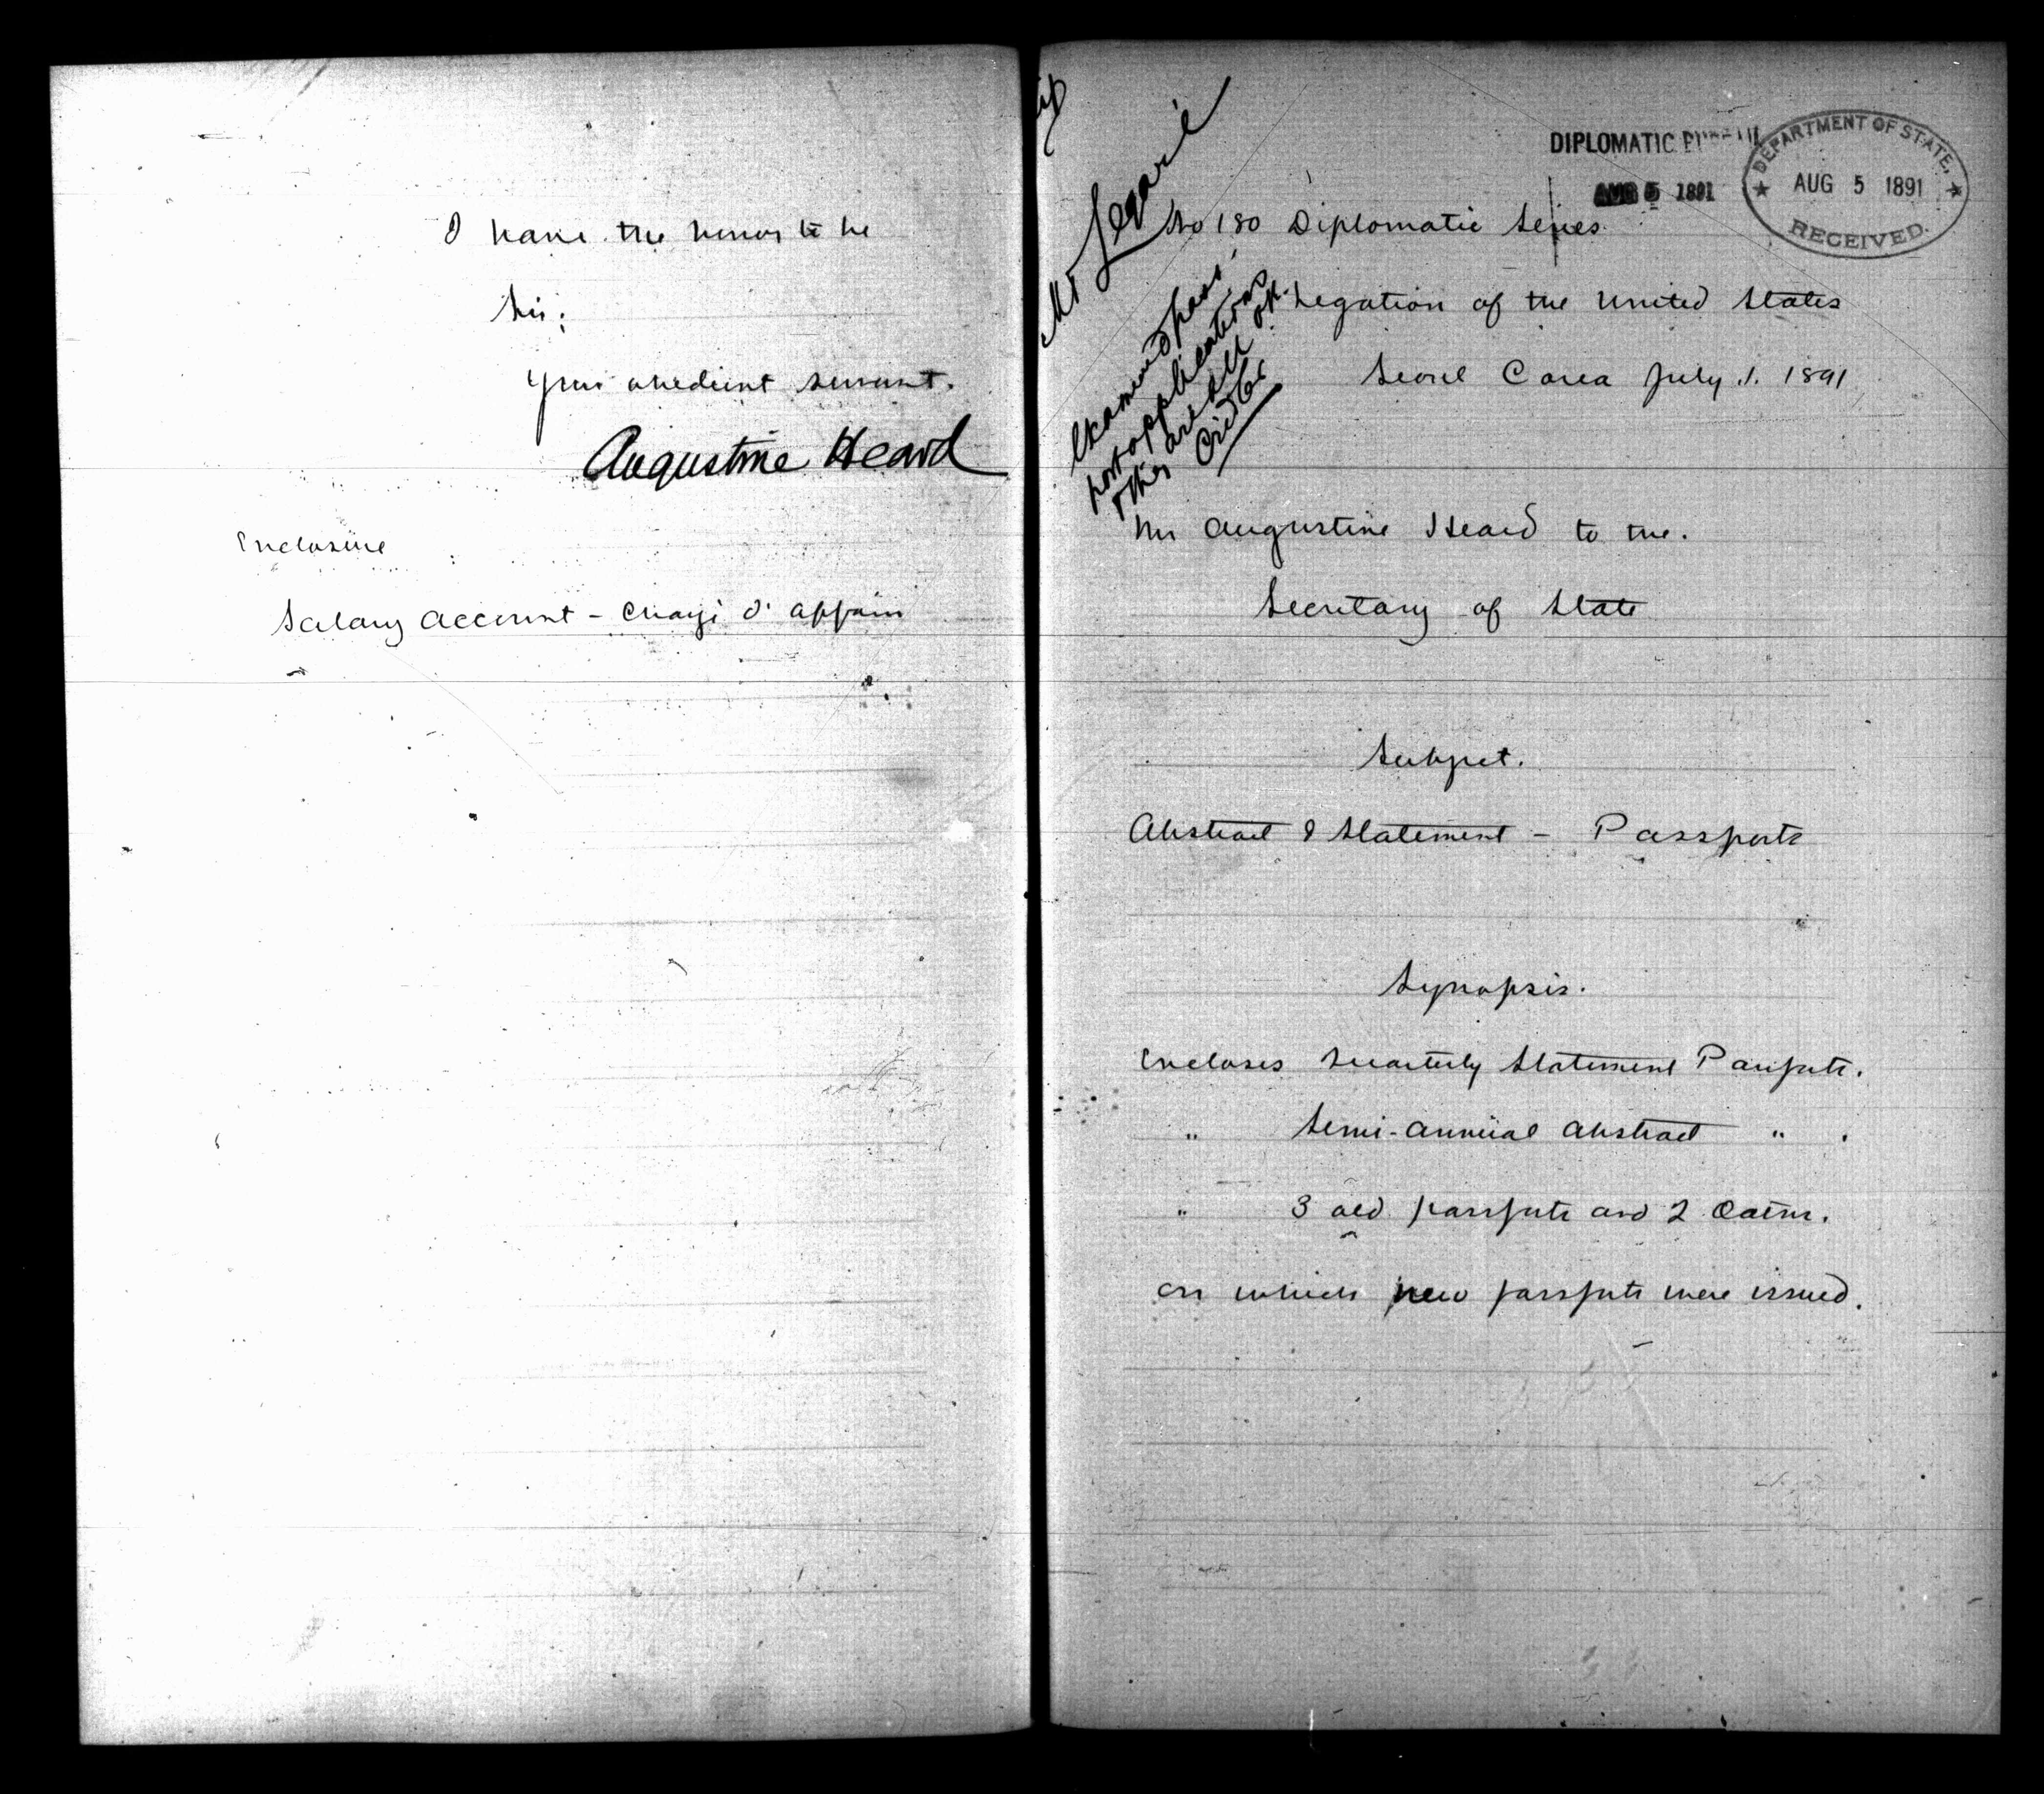 I have the honor to be
Sir;
Your obedient servant.
Augustine Heard
Enclosure
Salary Account - Chargé d' affairs
DIPLOMATIC BUREAU
AUG 5 1891
DEPARTMENT OF STATE,
AUG 5 1891
RECEIVED.
Mr Legaré
No 180 Diplomatic Series
Examined pass-
port applications
they are all OK.
Cridler
Legation of the United States
Seoul Corea July 1. 1891
Mr Augustine Heard to the.
Secretary of State
Subject.
Abstract & Statement - Passports
Synopsis.
Encloses Quarterly Statement Passports.
" Semi-Annual Abstract " .
" 3 old passports and 2 Oaths.
on which new passports were issued.